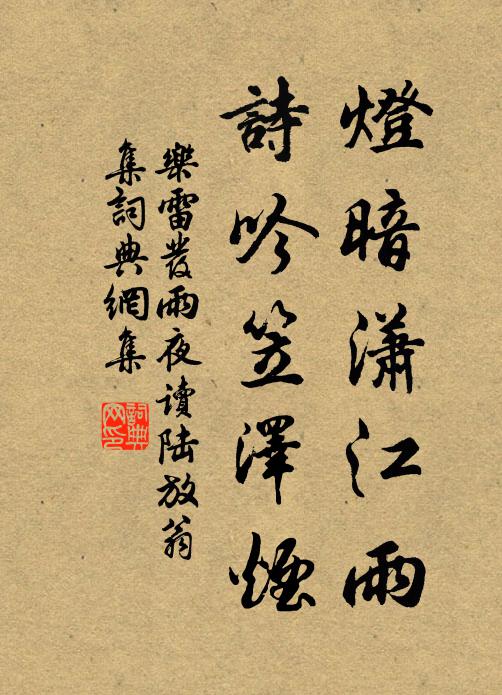 燈暗瀟江雨
詩吟笠澤煙
樂雷發雨夜讀陸放翁
集詞典網集
詞典
网印